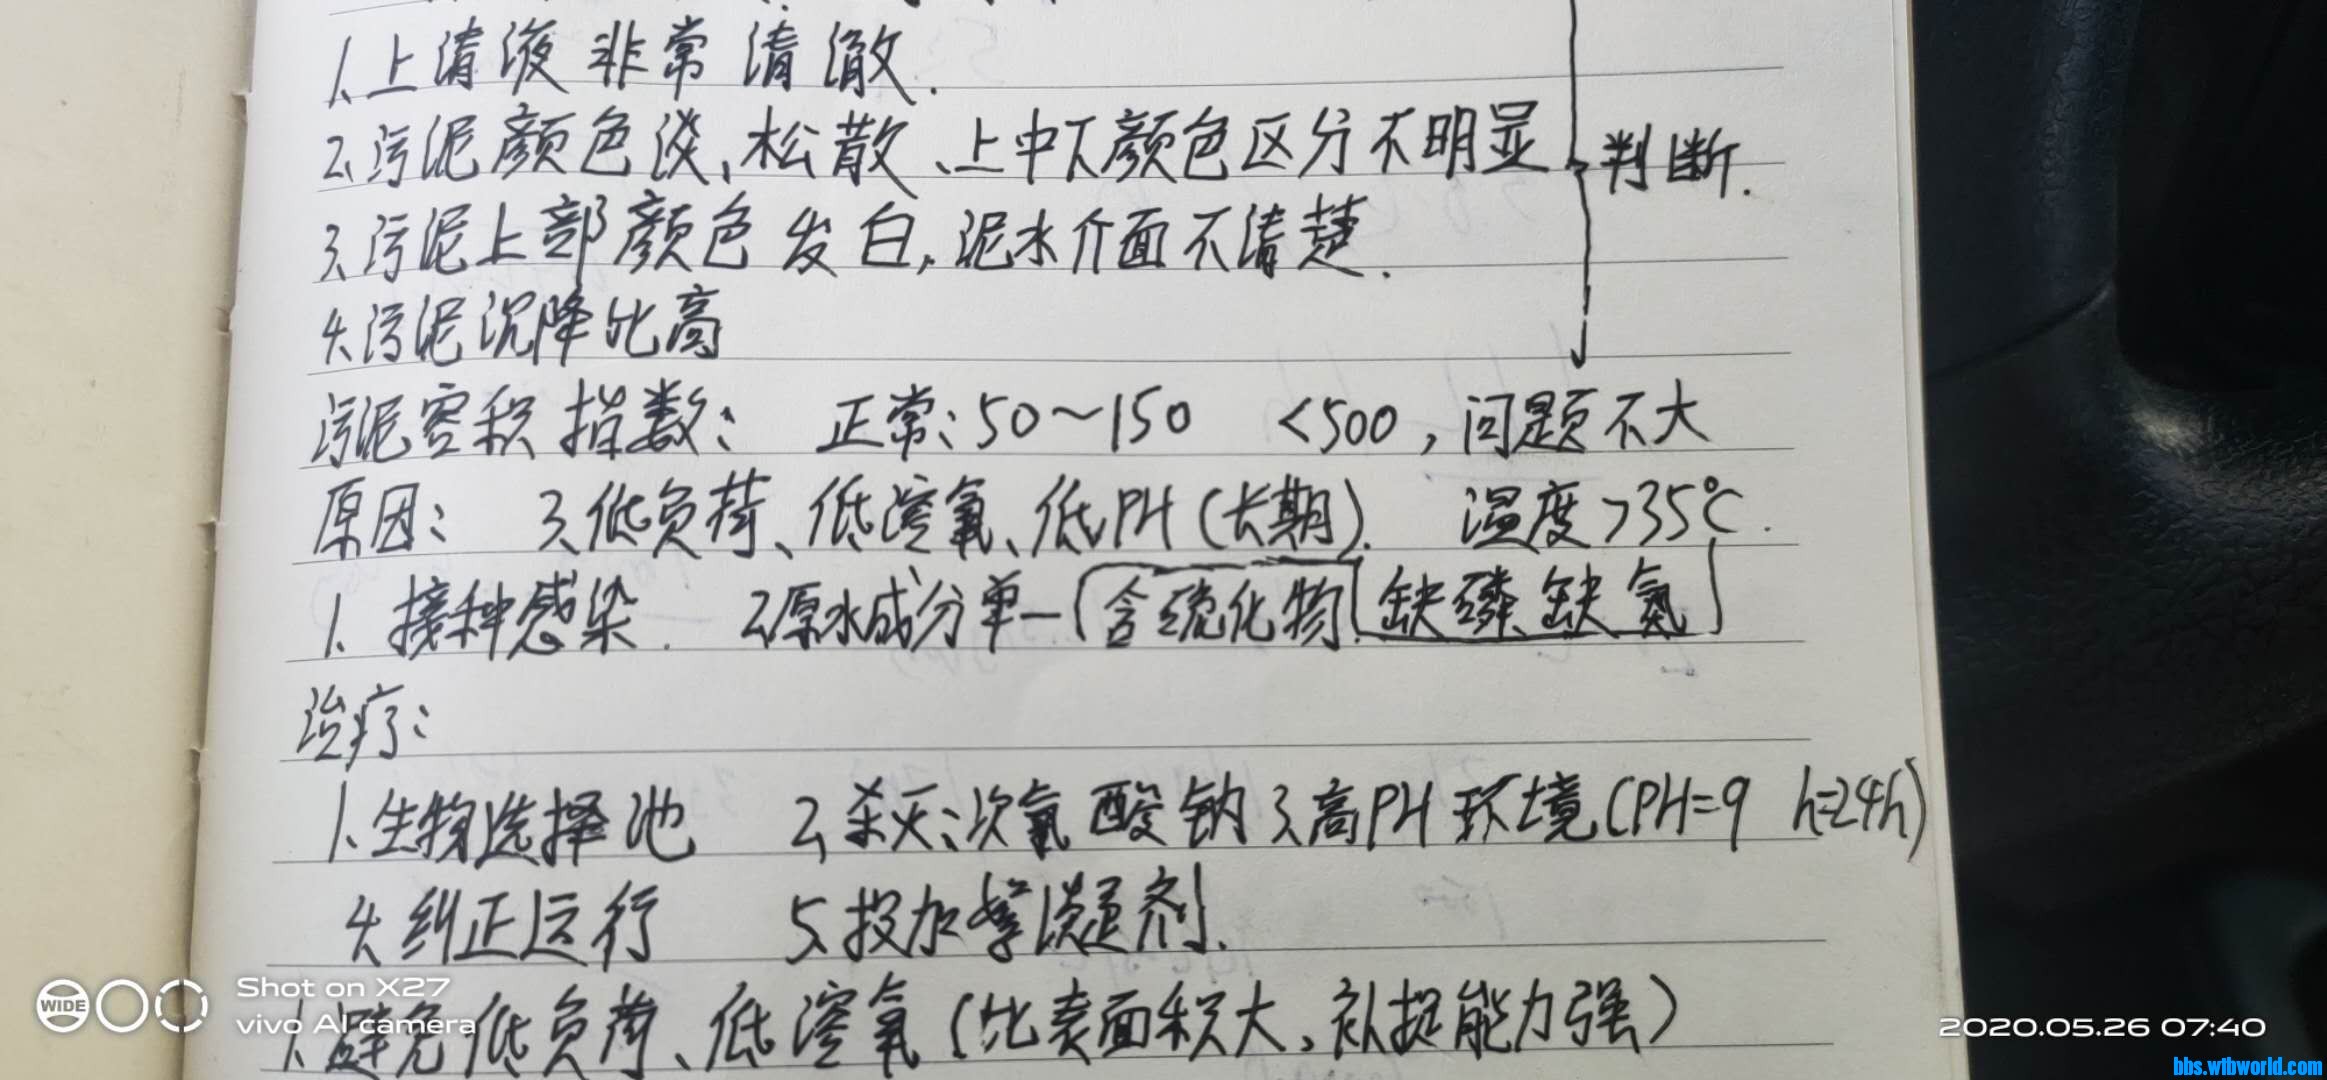 1、上清液非常清澈.
2、污泥颜色淡、松散、上中下颜色区分不明显
判断.
3、污泥上部颜色发白,泥水介面不清楚.
4、污泥沉降比高
污泥容积指数: 正常:50~150 <500,问题不大
原因: 3、低负荷、低溶氧、低PH(长期). 温度>35℃.
1、接种感染. 2、原水成分单一(含硫化物 缺磷、缺氮)
治疗:
1、生物选择池 2、杀灭:次氯酸钠 3、高PH环境(PH=9 h=24h)
4、纠正运行 5、投加絮凝剂.
1、避免低负荷、低溶氧(比表面积大,补捉能力强)
WIDE
Shot on X27
vivo AI camera
2020.05.26 07:40
bbs.wibworld.com